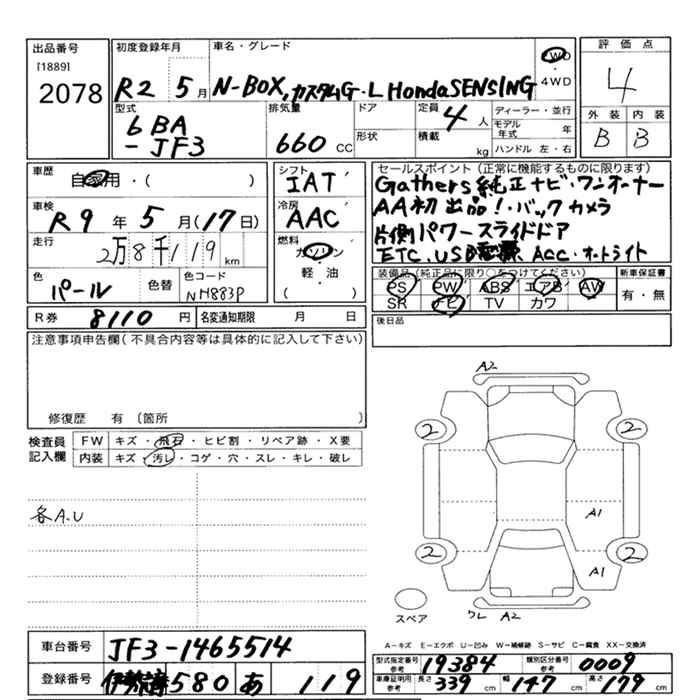 出品番号
[1889]
2078
初度登録年月
R2 5月
車名・グレード
N-BOX,カスタムG・L HondaSENSING
4WD
評価点
4
外装 内装
B B
型式
6BA
-JF3
排気量
660 CC
ドア
形状
定員 4 人
積載 kg
ディーラー・並行
モデル年式 年
ハンドル 左・右
車歴
自家用・( )
車検
R9 年 5 月 (17日)
走行
2万8千119 km
色
パール
色替
色コード
NH883P
シフト
IAT
冷房
AAC
燃料
ガソリン
軽・油
( )
セールスポイント(正常に機能するものに限ります)
Gathers純正ナビ・ワンオーナー
AA初出品!・バックカメラ
片側パワースライドドア
ETC.USB ACC・オートライト
装備品(純正品に限り○をつけてください)
PS PW ABS エアB AW
SR ナビ TV カワ
新車保証書
有・無
R券 8110 円
名変通知期限 月 日
後日品
注意事項申告欄(不具合内容等は具体的に記入して下さい)
修復歴 有 〔箇所 〕
検査員
記入欄
FW キズ・飛石・ヒビ割・リペア跡・X要
内装 キズ・汚レ・コゲ・穴・スレ・キレ・破レ
各A.U
A2
2 2
A1
2 2
A1
スペア
ワレ A2
A-キズ E-エクボ U-凹み W-補修跡 S-サビ C-腐食 XX-交換済
車台番号 JF3-1465514
登録番号 580 あ 119
型式指定番号 参考 19384
類別区分番号 参考 0009
車庫証明用 参考 長さ 339 cm 幅 147 cm 高さ 179 cm